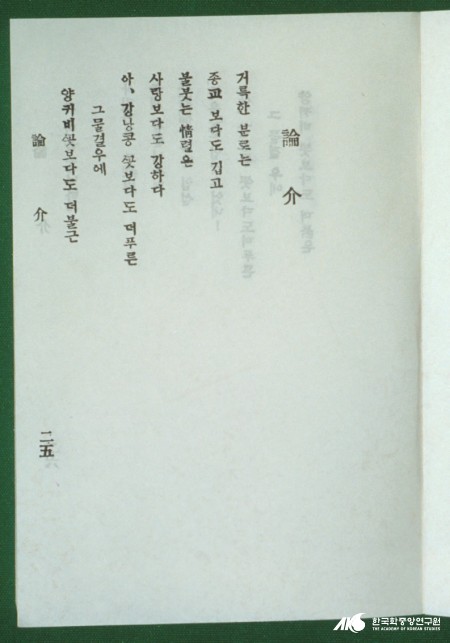 論介
거륵한 분로는
종교 보다도 깁고
불붓는 情렬은
사랑보다도 강하다
아、강낭콩 ᄭᅩᆺ보다도 더푸른
그물결우에
양귀비ᄭᅩᆺ보다도 더붉근
論介
二五
한국학중앙연구원
THE ACADEMY OF KOREAN STUDIES